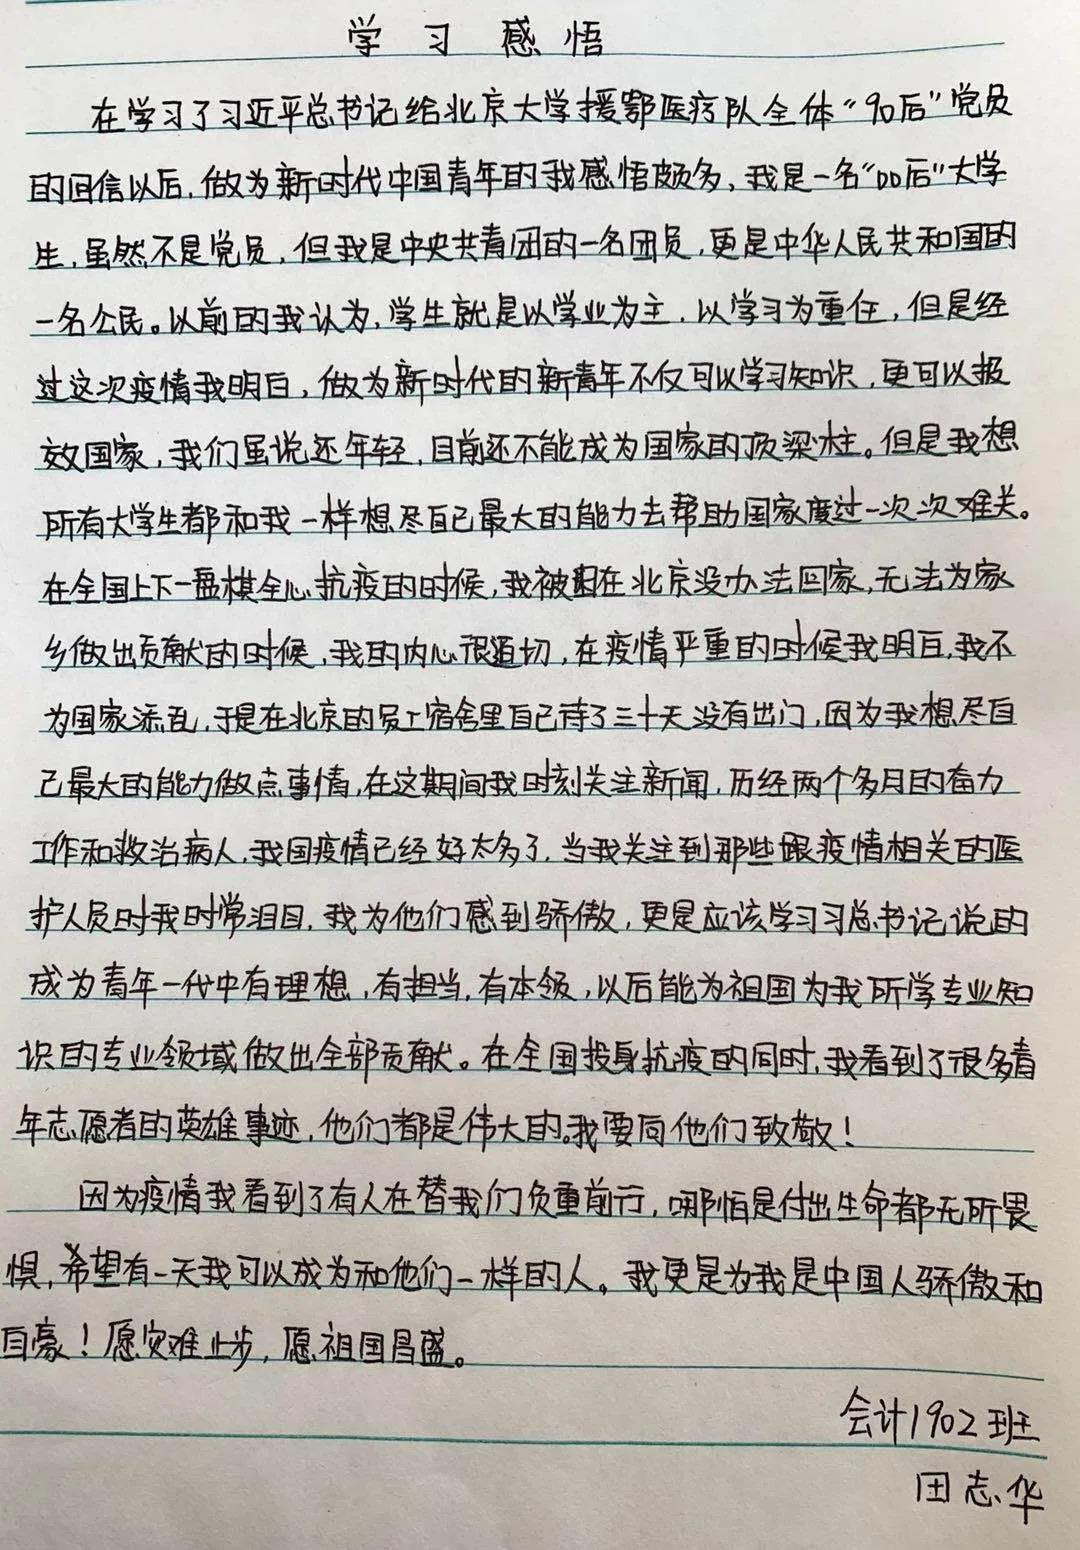 学习感悟
在学习了习近平总书记给北京大学援鄂医疗队全体“90后”党员
的回信以后，做为新时代中国青年的我感悟颇多，我是一名“00后”大学
生，虽然不是党员，但我是中央共青团的一名团员，更是中华人民共和国的
一名公民。以前的我认为，学生就是以学业为主，以学习为重任，但是经
过这次疫情我明白，做为新时代的新青年不仅可以学习知识，更可以报
效国家，我们虽说还年轻，目前还不能成为国家的顶梁柱。但是我想
所有大学生都和我一样想尽自己最大的能力去帮助国家度过一次次难关。
在全国上下一盘棋全心抗疫的时候，我被困在北京没办法回家，无法为家
乡做出贡献的时候，我的内心很迫切，在疫情严重的时候我明白，我不
为国家添乱，于是在北京的员工宿舍里自己待了三十天没有出门，因为我想尽自
己最大的能力做点事情，在这期间我时刻关注新闻，历经两个多月的奋力
工作和救治病人，我国疫情已经好太多了，当我关注到那些跟疫情相关的医
护人员时我时常泪目，我为他们感到骄傲，更是应该学习习总书记说的
成为青年一代中有理想，有担当，有本领，以后能为祖国为我所学专业知
识的专业领域做出全部贡献。在全国投身抗疫的同时，我看到了很多青
年志愿者的英雄事迹，他们都是伟大的。我要向他们致敬！
因为疫情我看到了有人在替我们负重前行，哪怕是付出生命都无所畏
惧，希望有一天我可以成为和他们一样的人。我更是为我是中国人骄傲和
自豪！愿灾难止步，愿祖国昌盛。
会计1902班
田志华